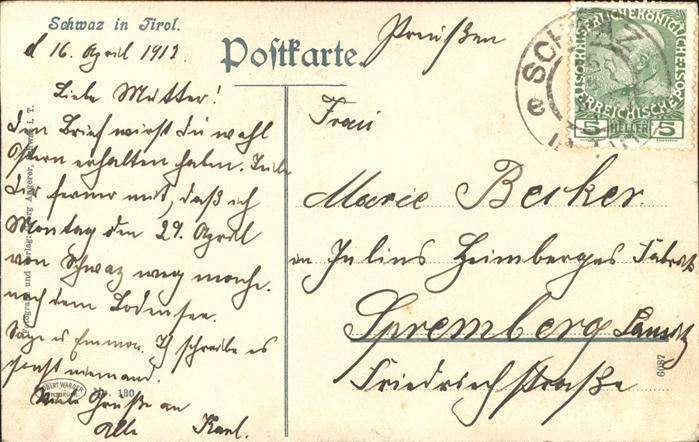 Schwaz in Tirol.
d 16. April 1912
Postkarte.
Preußen
SCHWAZ
KAISERLICHE KÖNIGLICHE
ÖSTERREICHISCHE
5 HELLER 5
Liebe Mutter!
Den Brief wirst du wohl
Ostern erhalten haben. Teile
Dir ferner mit, daß ich
Montag den 29. April
von Schwaz weg mache.
nach dem Bodensee.
Sage es Emma. Ich schreibe es
sonst niemand.
Viele Grüße an
Alle Karl.
Frau
Marie Becker
in Julius Heimberges Fabrik
Spremberg Lausitz
Friedrichstraße
Photogr. und Verlag: Angerer, Schwaz i. T.
No. 180
6087